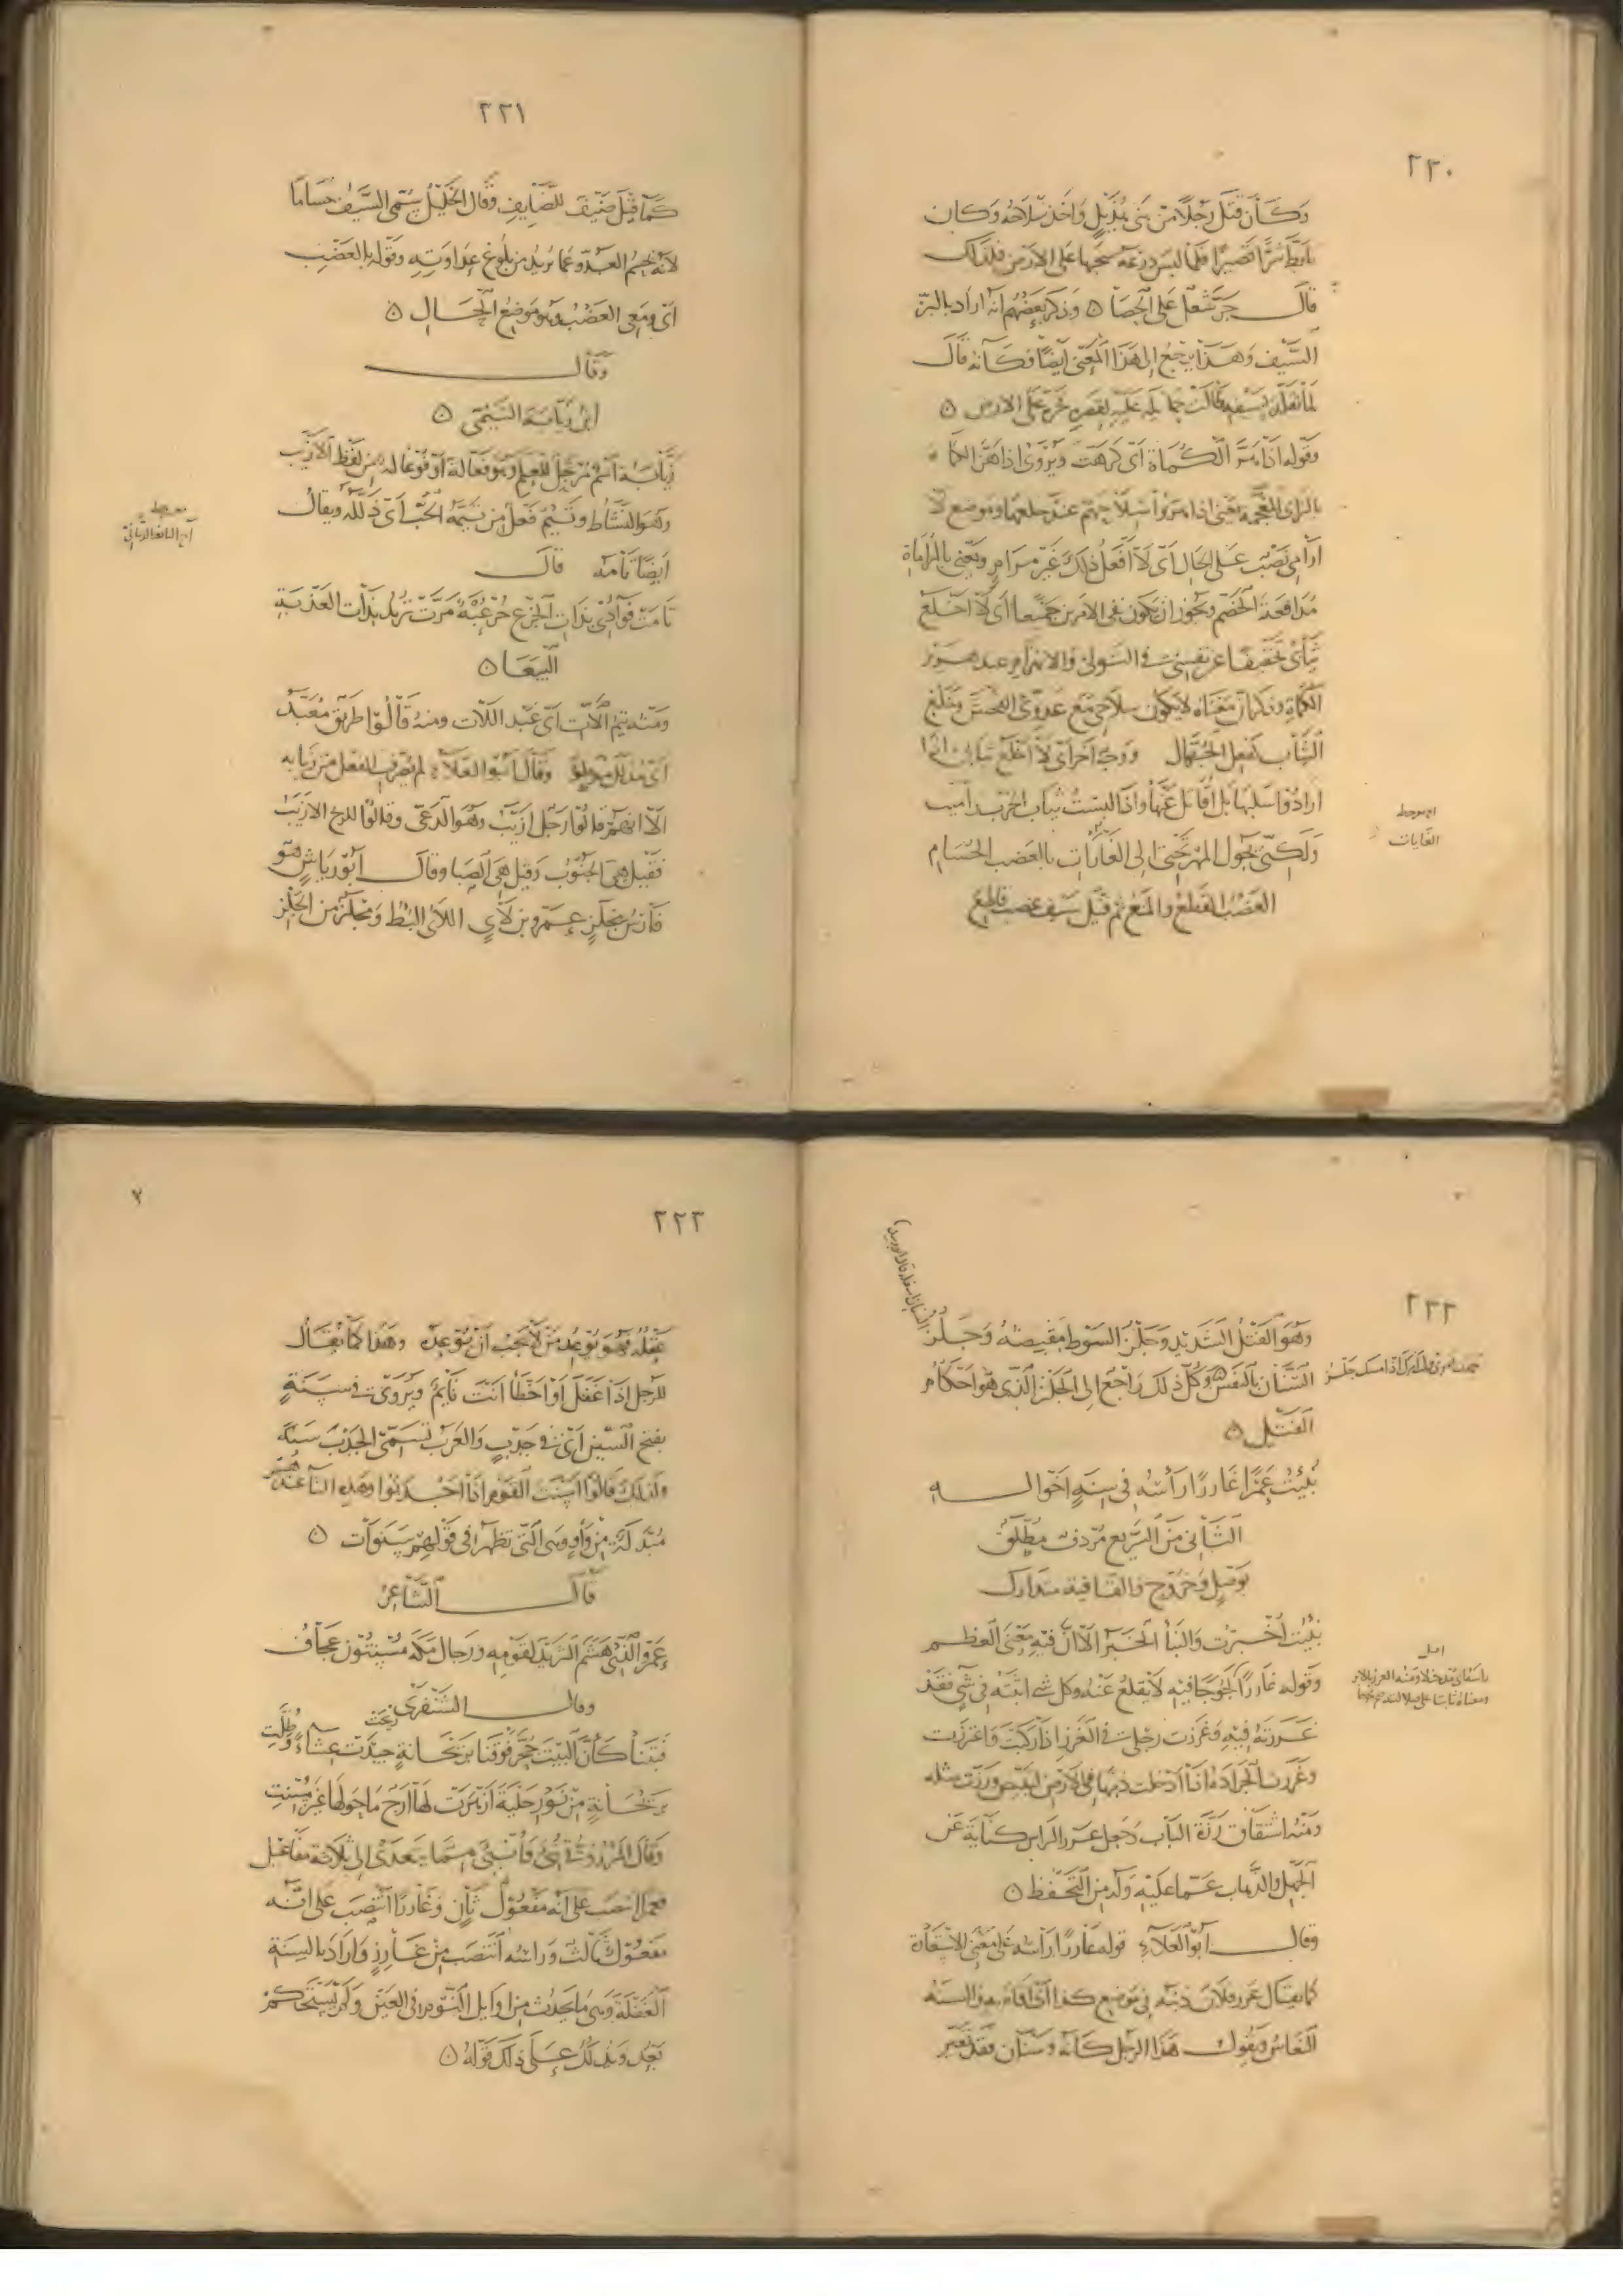 ٢٢٠
وكان قتل رجلا من بني هذيل واخذ سلاحه وكان
تابط شرا قصيرا فلما لبس درعه سحبها على الارض فلذلك
قال جر شعل على الحصا ٥ وذكر بعضهم انه اراد بالبز
السيف وهذا يرجع الى هذا المعنى ايضا وكانه قال
لما تقلد بسيفه طالت حمايله عليه لقصره فجره على الارض ٥
وقوله اذا هر الكماة اي كرهت ويروى اذا هز الكماة
بالزاي المعجمة يعني اذا هزوا اسلاحهم عند خلعها وموضع لا
ارامي نصب على الحال اي لا افعل ذلك غير مرام ويعني بالمراماة
مدافعة الخصم ويجوز ان يكون نفى الامرين جميعا اي لا اخلع
ثيابي تخفيفا عن نفسي في التولي والانهزام عند هرير
الكماة
الثياب كفعل الجهال ووجه اخر اي لا اخلع ثيابي اذا
ارادوا سلبها بل اقاتل عنها واذا لبست ثياب الحرب
ولكني يجول المهر تحتي الى الغارات بالعضب الحسام
العضب القطع والمنع ثم قيل سيف عضب قاطع
الغايات
٢٢١
كما قيل ضيف للضايف وقال الخليل سمي السيف حساما
لانه يحسم العدو عما يريد من بلوغ عداوته وقوله بالعضب
اي ومعي العضب وهو موضع الحال ٥
وقال
ابن زيابة التيمي ٥
زيابة اسم مرتجل للعلم وهو فعالة او فوعالة من لفظ الازيب
وهو النشاط وتيم فعل من تيمه الحب اي ذلله ويقال
ايضا تامه قال
تامت فوادي بذات الجزع خرعبة مرت تريد بذات العذبة
البيعا ٥
ومنه تيم اللات اي عبد اللات ومنه قالوا طريق معبد
اي مذلل موطو وقال ابو العلاء لم يصرف الفعل من زيابه
الا انهم قالوا رجل ازيب وهو الدعي وقالوا للريح الازيب
فقيل هي الجنوب وقيل هي الصبا وقال ابو رياش هو
فارس مجلز عمرو بن لاي اللاى البطء ومجلز من الجلز
٢٢٢
وهو الفتل الشديد وجلز السوط مقبضه وجلز
السنان وكل ذلك راجع الى الجلز الذي هو احكام
الفتل ٥
نبئت عمرا غارزا راسه في سنة يوعد اخواله
الثاني من السريع مردف مطلق
بوصل وخروج والقافية متدارك
نبئت اخبرت والنبا الخبر الا ان فيه معنى العظم
وقوله غارزا لجوجا فيه لا يقلع عنه وكل شي اثبته في شي فقد
غرزته فيه وغرزت رجلي في الغرز اذا ركبت واغترزت
وغرزت الجرادة اذا ادخلت ذنبها في الارض لتبيض ورزت مثله
ومنه اشتقاق رزة الباب وجعل غرز الراس كناية عن
الجهل والذهاب عما عليه وله من التحفظ ٥
وقال ابو العلاء قوله غارزا راسه على معنى الاستعارة
كما يقال غرز فلان ذنبه في موضع كذا اي اقام به والسنة
النعاس ويقول هذا الرجل كانه وسنان فقد تغير
٢٢٣
عقله فهو يوعد من لا يجب ان يوعد وهذا كما يقال
للرجل اذا غفل او اخطا انت نايم ويروى في سنة
بفتح السين اي في جدب والعرب تسمي الجدب سنة
ولذلك قالوا اسنت القوم اذا اجدبوا وهذه التا عندهم
مبدلة من واو وهي التي تظهر في قولهم سنوات ٥
قال الشاعر
عمرو الذي هشم الثريد لقومه ورجال مكة مسنتون عجاف
وقال الشنفرى
فبتنا كان البيت حجر فوقنا بريحانة ريحت عشاء وطلت
بريحانة من نور حلية ازهرت لها ارج ما حولها غير مسنت
وقال المرزوقي نبئ وانبئ مما يتعدى الى ثلاثة مفاعيل
فعمرا انتصب على انه مفعول ثان وغارزا انتصب على انه
مفعول ثالث وراسه انتصب من غارز واراد بالسنة
الغفلة وهي ما يحدث من اوايل النوم في العين ولم يستحكم
بعد ويدلك على ذلك قوله ٥